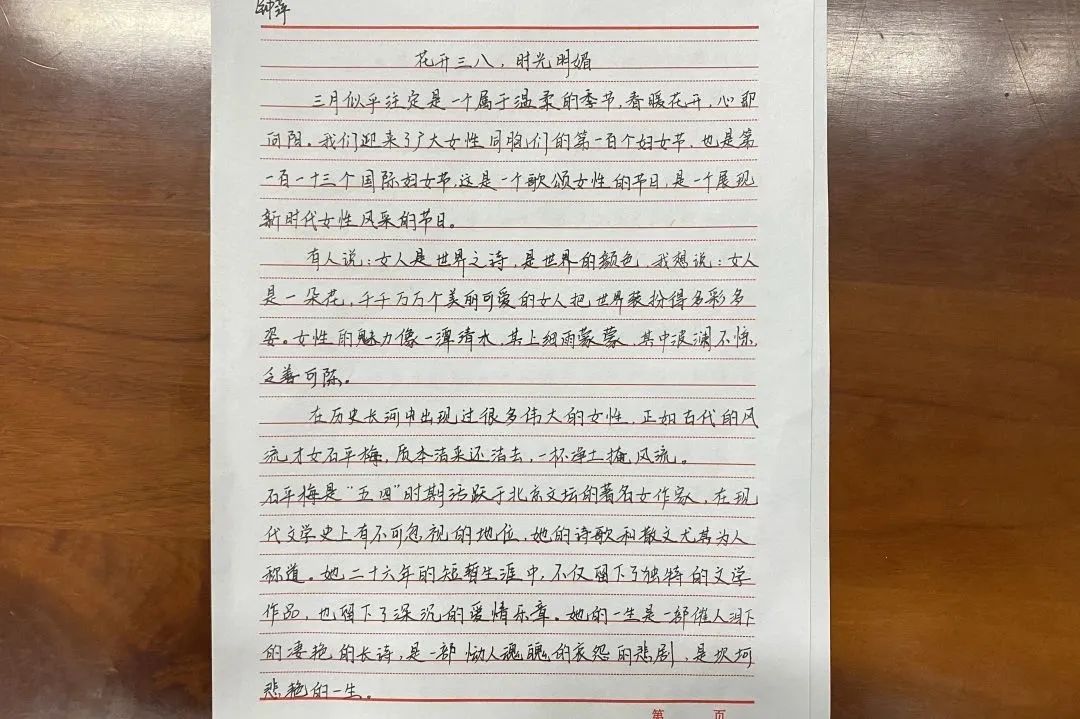 钟萍
花开三八，时光明媚
三月似乎注定是一个属于温柔的季节，春暖花开，心都
向阳。我们迎来了广大女性同胞们的第一百个妇女节，也是第
一百一十三个国际妇女节，这是一个歌颂女性的节日，是一个展现
新时代女性风采的节日。
有人说：女人是世界之诗，是世界的颜色，我想说：女人
是一朵花，千千万万个美丽可爱的女人把世界装扮得多彩多
姿。女性的魅力像一潭清水，其上细雨蒙蒙，其中波澜不惊，
乏善可陈。
在历史长河中出现过很多伟大的女性，正如百代的风
流才女石平梅，质本洁来还洁去，一杯净土掩风流。
石平梅是“五四”时期活跃于北京文坛的著名女作家，在现
代文学史上有不可忽视的地位，她的诗歌和散文尤其为人
称道。她二十六年的短暂生涯中，不仅留下了独特的文学
作品，也留下了深沉的爱情乐章。她的一生是一部催人泪下
的凄艳的长诗，是一部恸人魂魄的哀怨的悲剧，是坎坷
悲艳的一生。
第 页